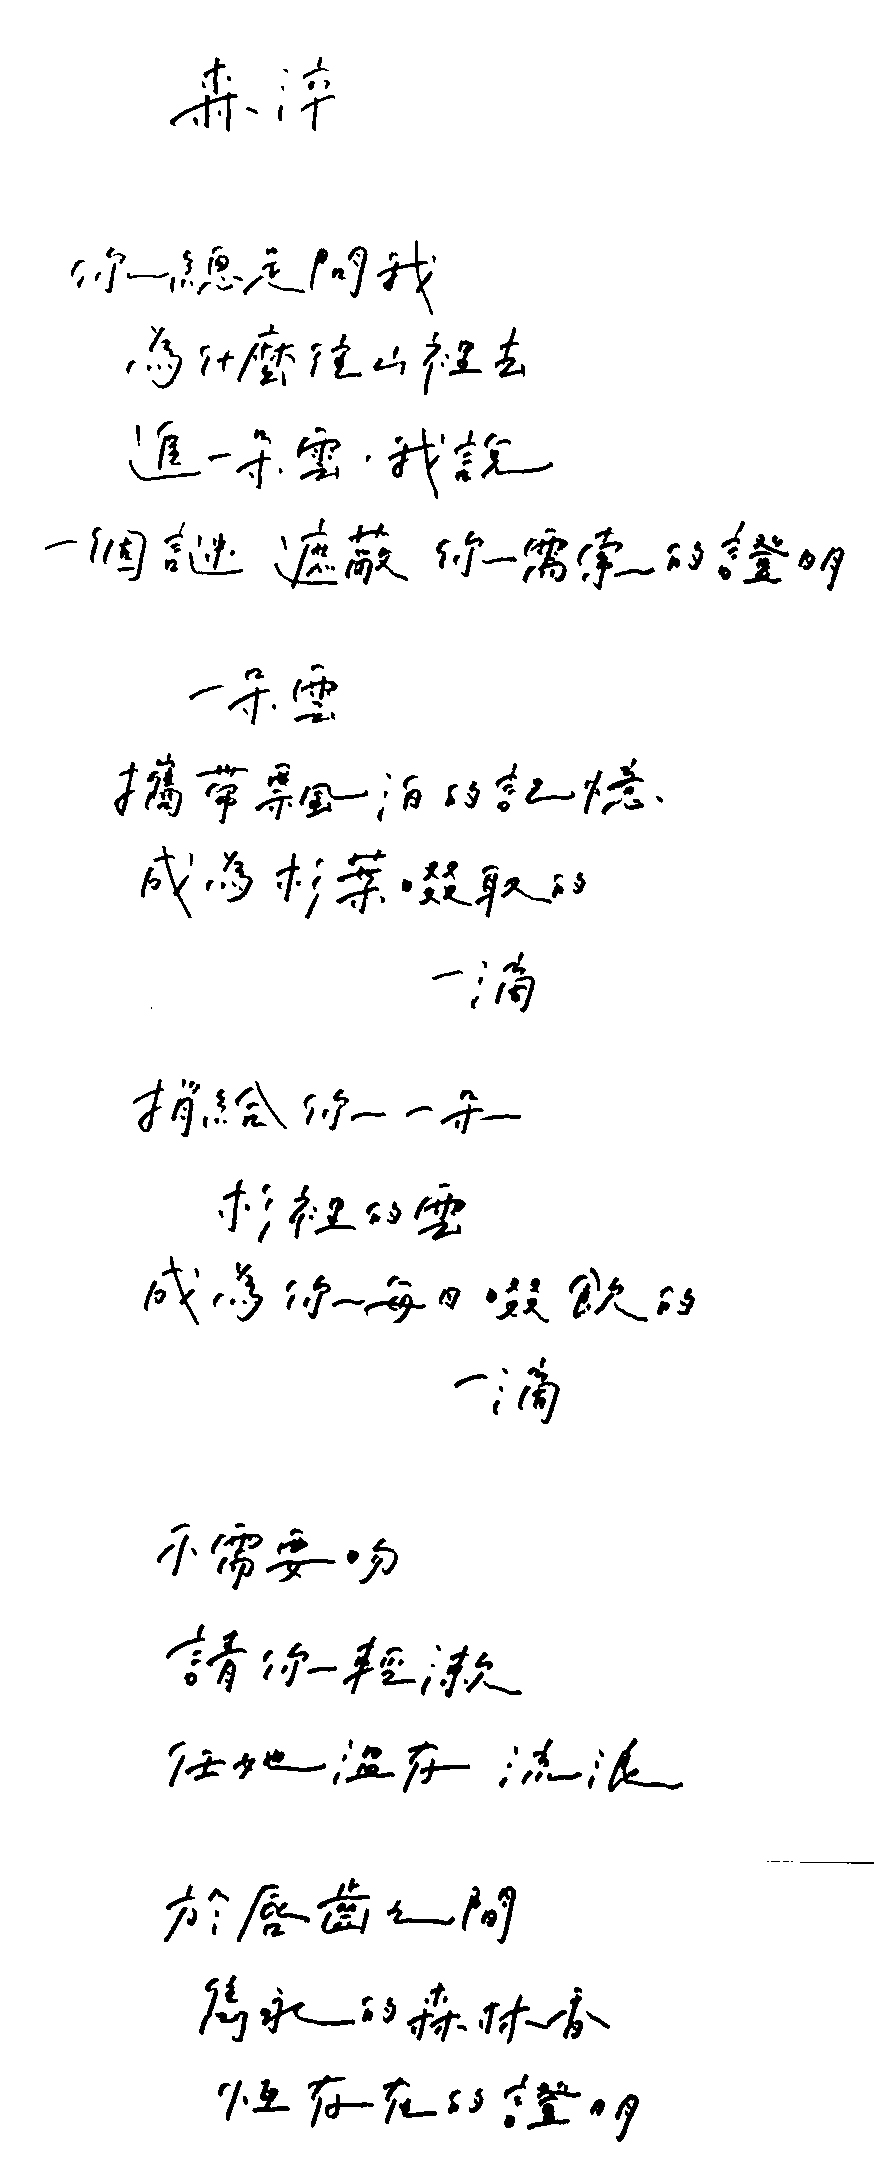 森淬
你總是問我
為什麼往山裡去
進一朵雲．我說
一個謎 遮蔽 你需索的證明
一朵雲
攜帶飄泊的記憶
成為杉葉啜取的
一滴
捎給你一朵
杉裡的雲
成為你每日啜飲的
一滴
不需要吻
請你輕漱
任她溫存 流浪
於唇齒之間
雋永的森林香
恆存在的證明